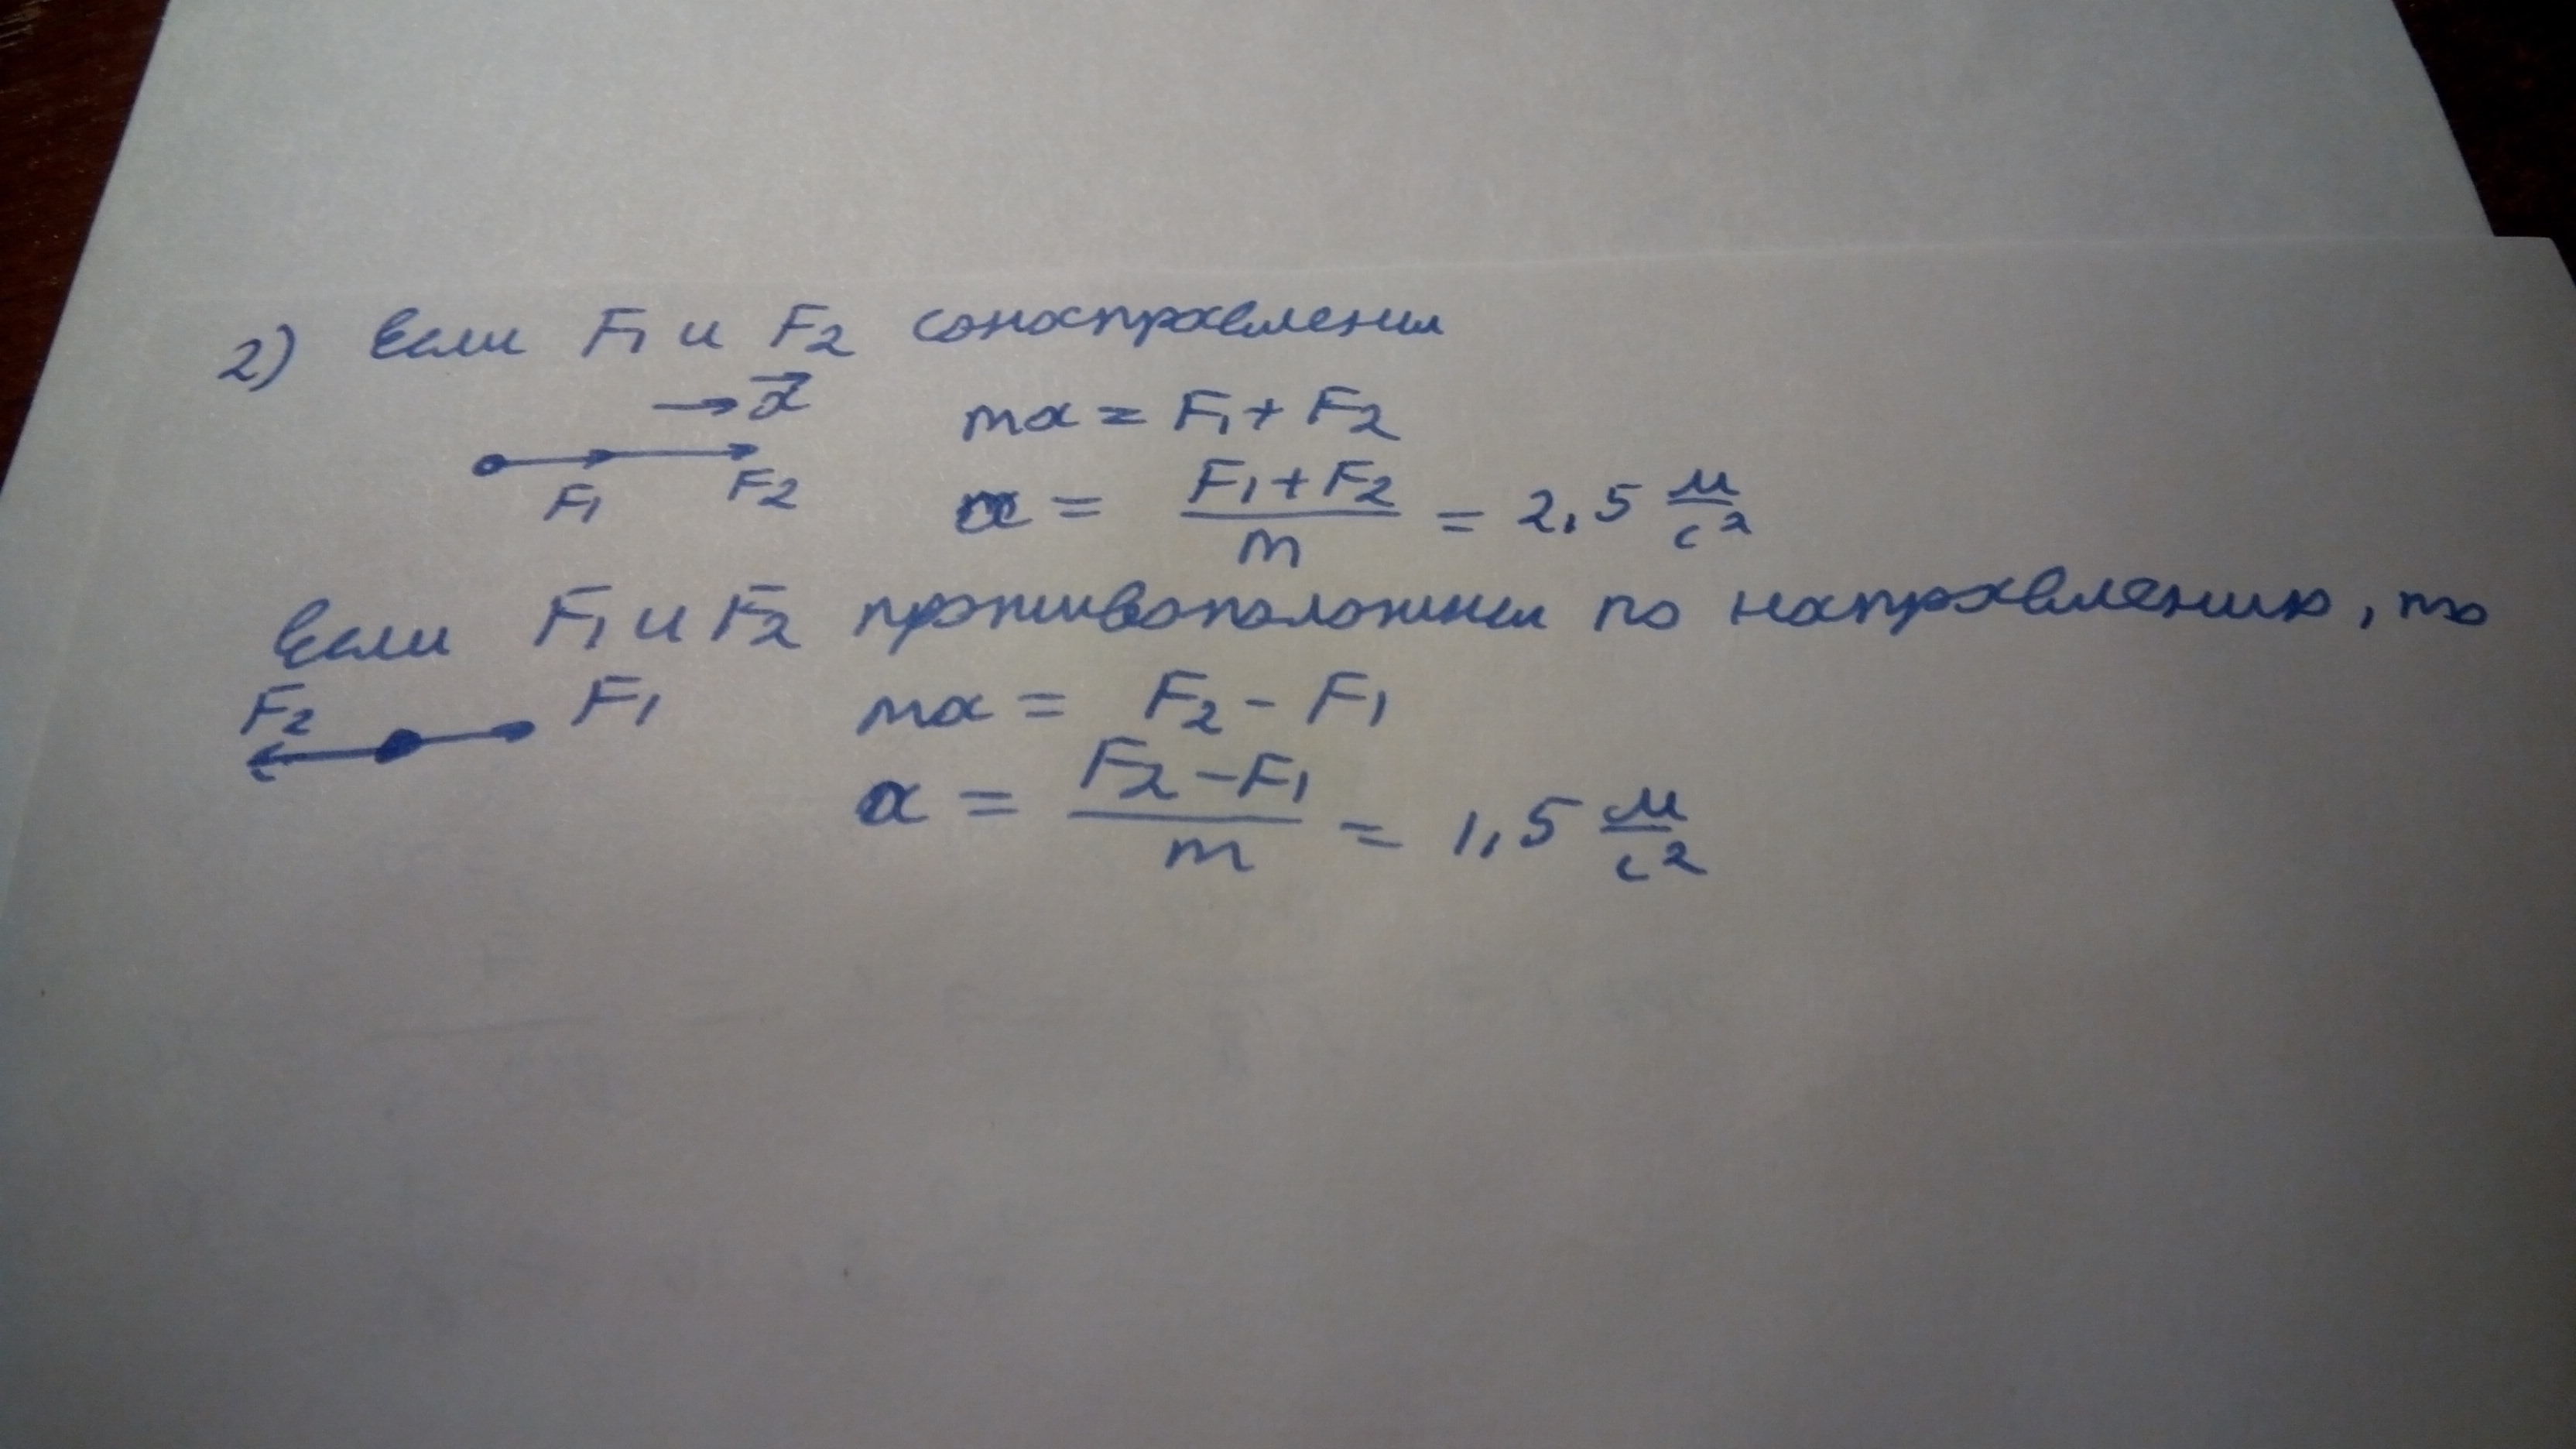 2) Если F₁ и F₂ сонаправлены
→ a⃗
ma = F₁ + F₂
F₁ F₂
a = (F₁ + F₂)/m = 2,5 м/с²
Если F₁ и F₂ противоположны по направлению, то
F₂ F₁
ma = F₂ - F₁
a = (F₂ - F₁)/m = 1,5 м/с²